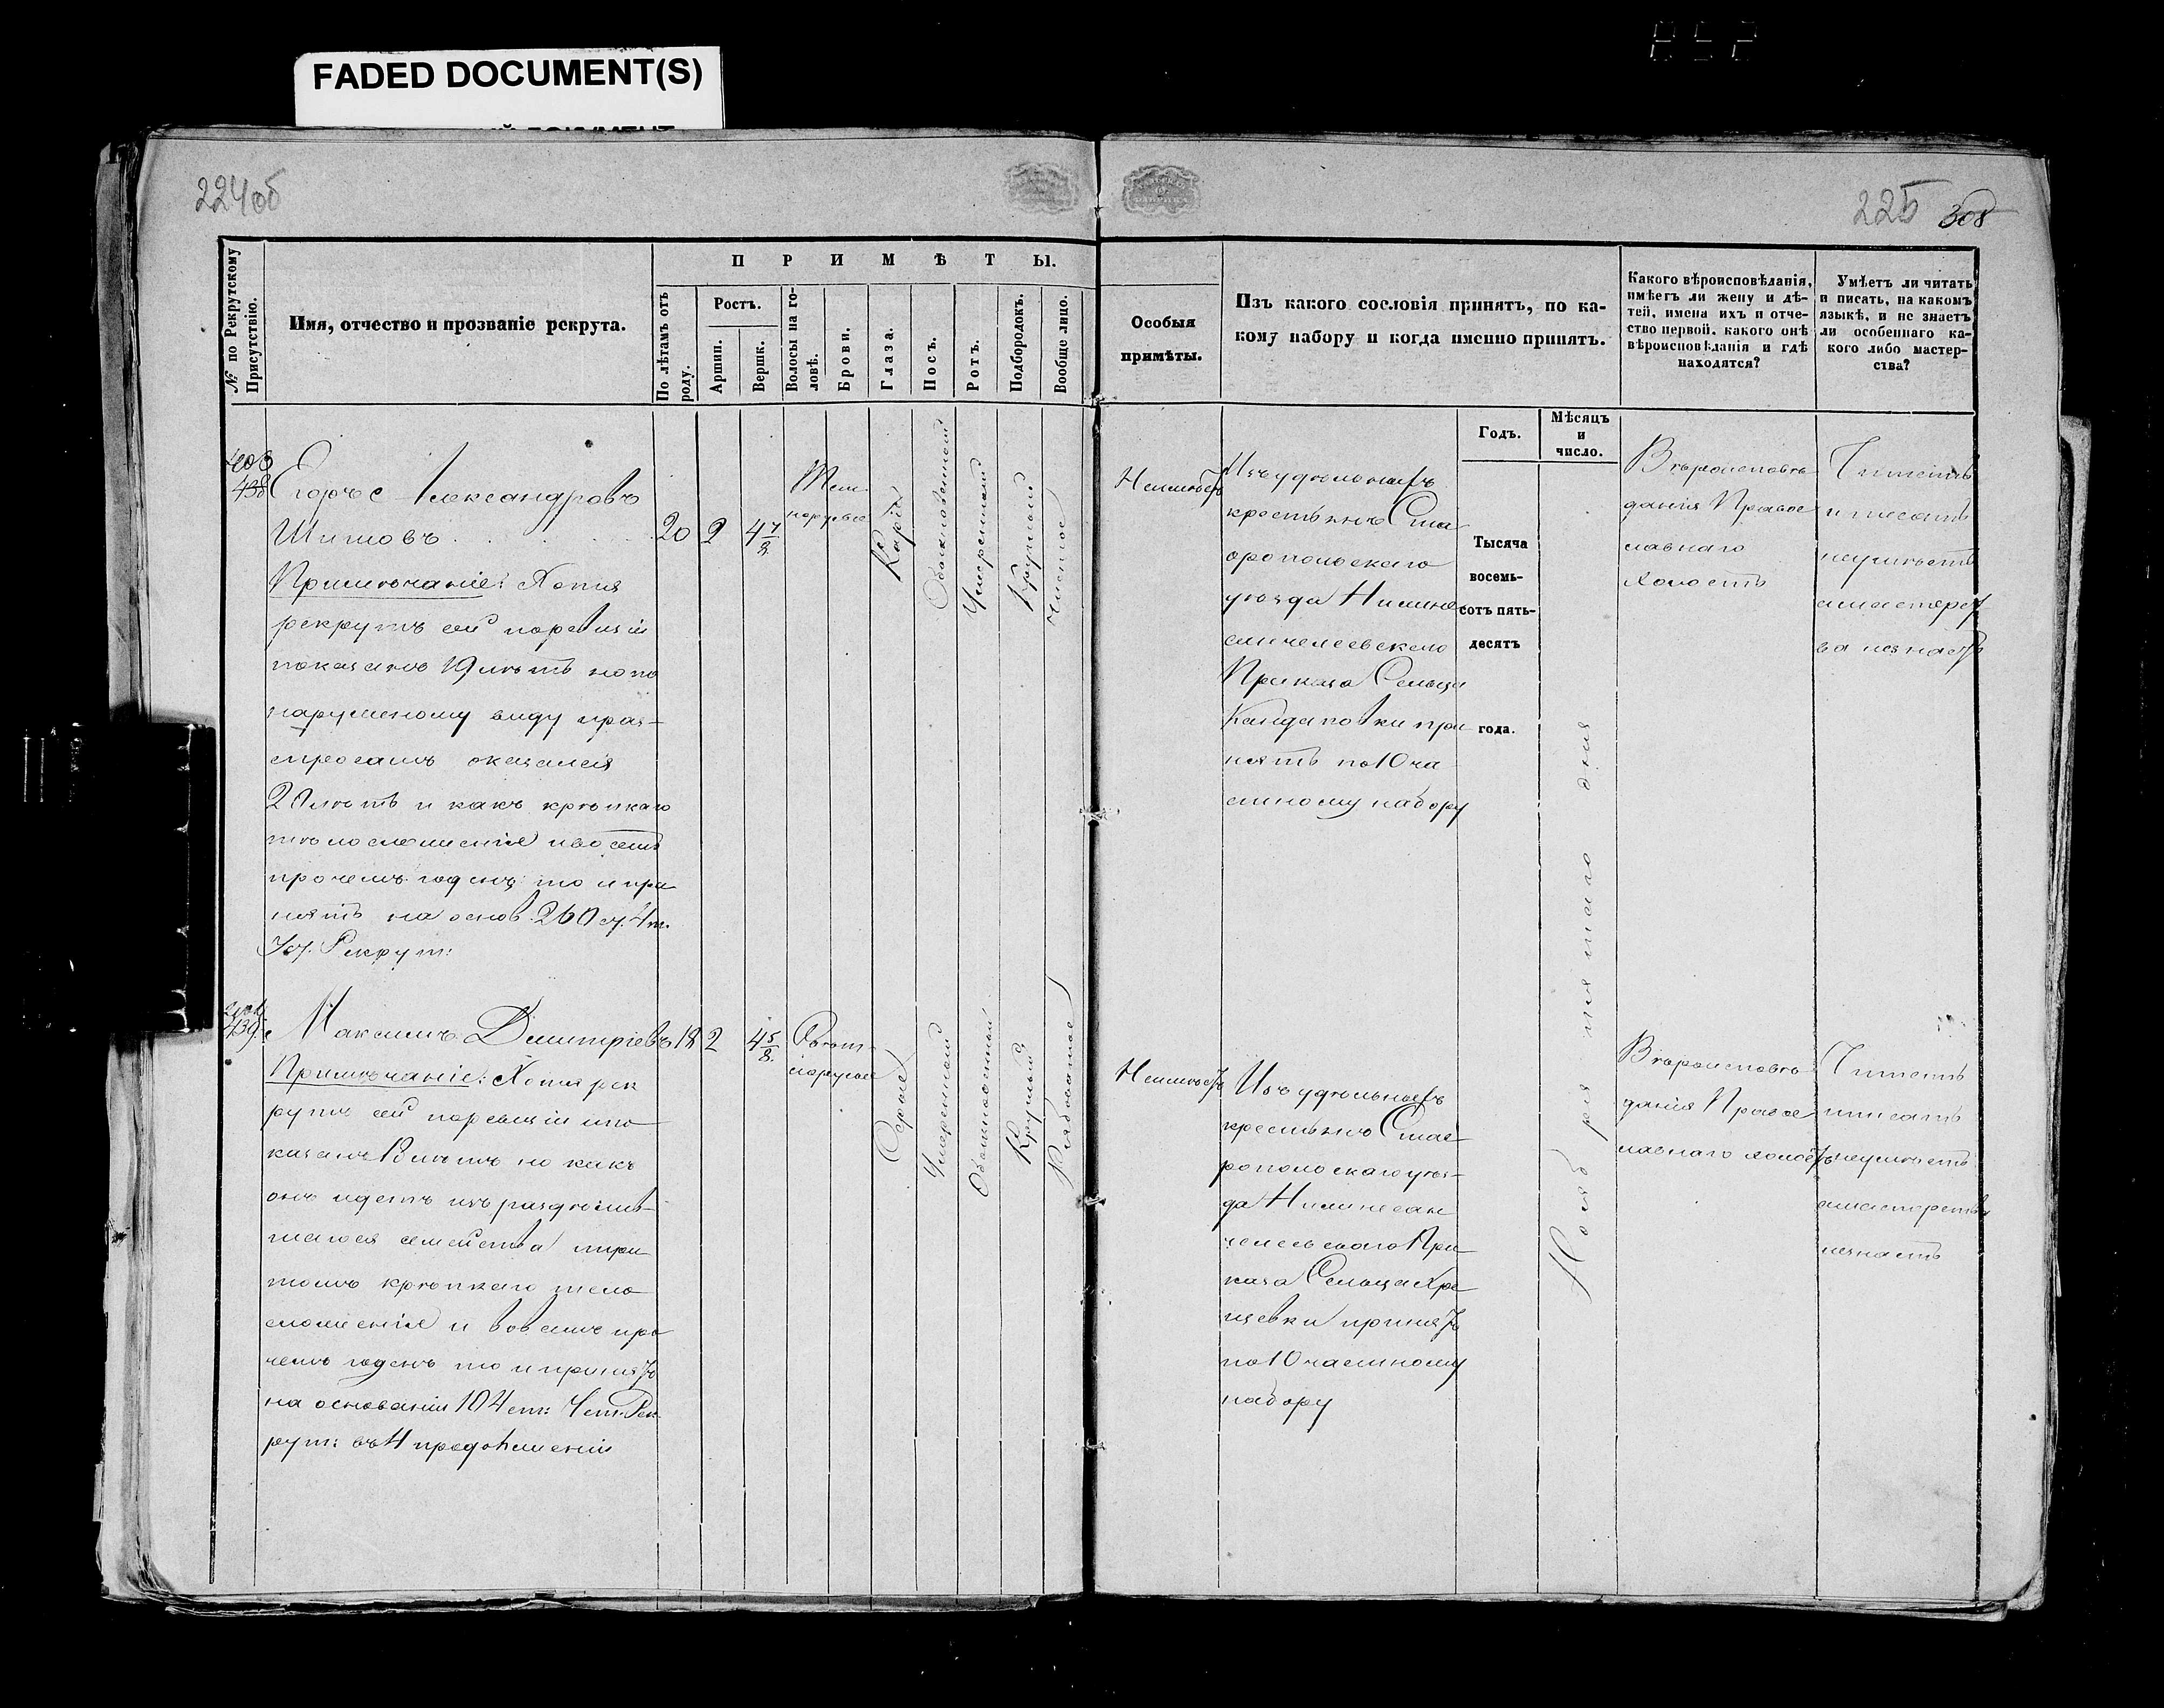 FADED DOCUMENT(S)
224об
225 308
№ по Рекрутскому Присутствію.
Имя, отчество и прозваніе рекрута.
ПРИМѢТЫ.
По лѣтамъ отъ роду.
Ростъ.
Аршин.
Вершк.
Волосы на головѣ.
Брови.
Глаза.
Носъ.
Ротъ.
Подбородокъ.
Вообще лицо.
Особыя
примѣты.
Изъ какого сословія принятъ, по ка-
кому набору и когда именно принятъ.
Годъ.
Мѣсяцъ
и
число.
Какого вѣроисповѣданія,
имѣетъ ли жену и дѣ-
тей, имена ихъ и отче-
ство первой, какого онѣ
вѣроисповѣданія и гдѣ
находятся?
Умѣетъ ли читать
и писать, на какомъ
языкѣ, и не знаетъ
ли особеннаго ка-
кого либо мастер-
ства?
438
Егоръ Александровъ
Шишовъ
20 2 4 7/8
Примѣчаніе: Хотя
рекрутъ сей по ревизіи
показанъ 19 лѣтъ но по
наружному виду и рас-
спросамъ оказался
20 лѣтъ и какъ крѣпкаго
тѣлосложенія и во всемъ
прочемъ годенъ то и при
нятъ на основ. 260 ст. 4 т.
Уст. Рекрут:
Тем
норусые
Каріе
Обыкновенной
Умеренный
Круглый
Чистое
Неимѣетъ
Изъ удѣльныхъ
крестьянъ Ста
вропольскаго
уѣзда Нижне
санчелеевскаго
Приказа Сельца
Кандаловки при
нятъ по 10 ча
стному набору
Тысяча
восемь-
сотъ пять-
десятъ
года.
Ноября пятаго дня
Вѣроисповѣ
данія Правос
лавнаго
холостъ
Читать
и писать
неумѣетъ
и мастерст
ва незнаетъ
439.
Максимъ Дмитріевъ 18 2 4 5/8.
Примѣчаніе: Хотя рек
рутъ сей по ревизіи и по
казанъ 18 лѣтъ но какъ
онъ идетъ изъ раздѣлив-
шагося семейства и при
томъ крѣпкаго тело
сложенія и вовсемъ про
чемъ годенъ то и принятъ
на основаніи 104 ст: Уст. Рек
рут: въ 4 продолженіи
Свѣт-
лорусые
Серые
Умеренный
Обыкновенный
Круглый
Рябоватое
Неимѣетъ
Изъ удѣльныхъ
крестьянъ Став
ропольскаго уѣз-
да Нижнесан
челеевскаго При
каза Сельца Хря
щевки принятъ
по 10 частному
набору
Вѣроисповѣ
данія Правос
лавнаго холостъ
Читать
и писать
неумѣетъ
и мастерства
незнаетъ